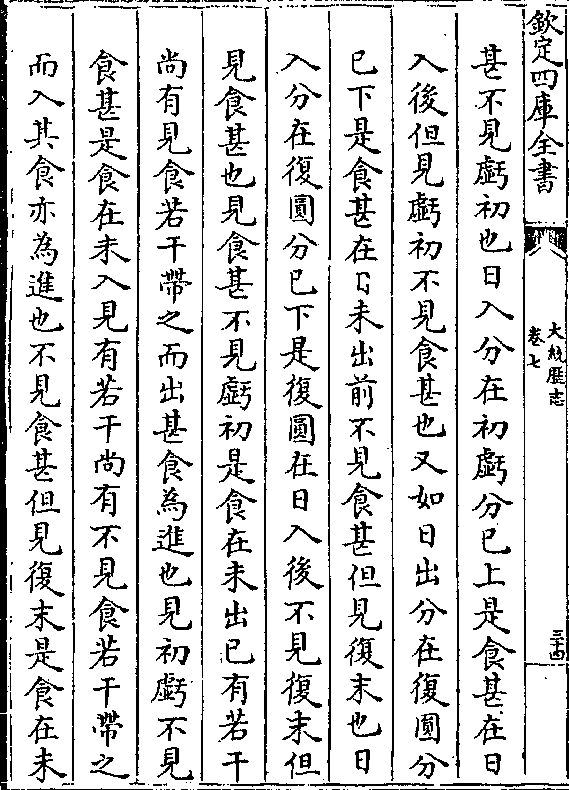 欽定四庫全書
大統歴志
卷七
三十四
甚不見虧初也日入分在初虧分已上是食甚在日
入後但見虧初不見食甚也又如日出分在復圓分
已下是食甚在日未出前不見食甚但見復末也日
入分在復圓分已下是復圓在日入後不見復末但
見食甚也見食甚不見虧初是食在未出已有若干
尚有見食若干帶之而出甚食為進也見初虧不見
食甚是食在未入見有若干尚有不見食若干帶之
而入其食亦為進也不見食甚但見復末是食在未